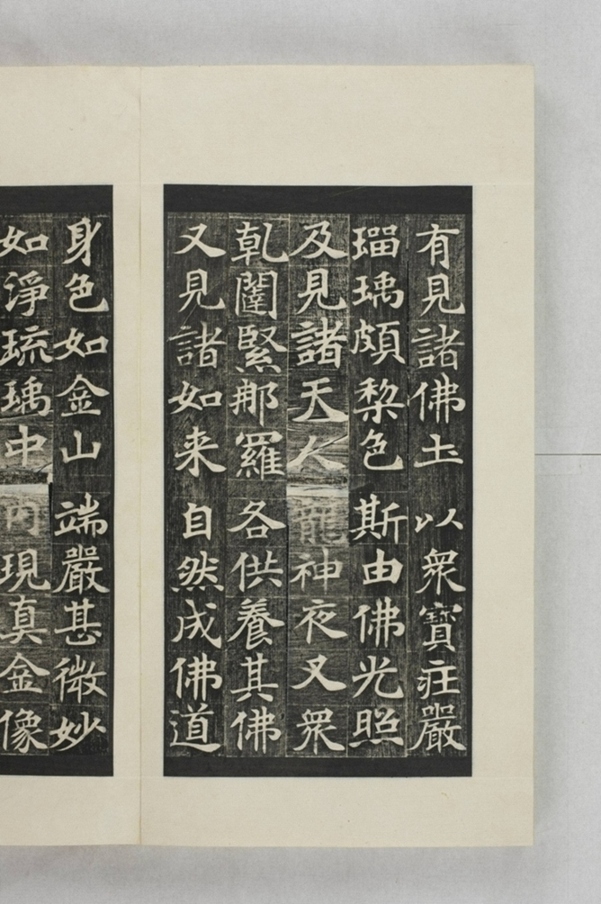 有見諸佛圡 以衆寶疰嚴
瑠瑀頗梨色 斯由佛光照
及見諸天人 龍神夜叉衆
乹闥緊那羅 各供養其佛
又見諸如来 自然成佛道
身色如金山 端嚴甚微妙
如淨琉瑀中 内現真金像